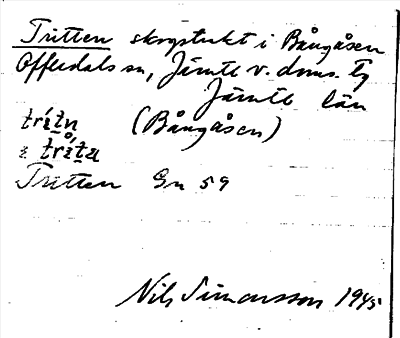 Tritten skogstrakt i Bångåsen
Offerdals sn, Jämtl. v. doms. tg
Jämtl. län
trítn (Bångåsen)
å tríta
Tritten Gn 59
Nils Simonsson 1945